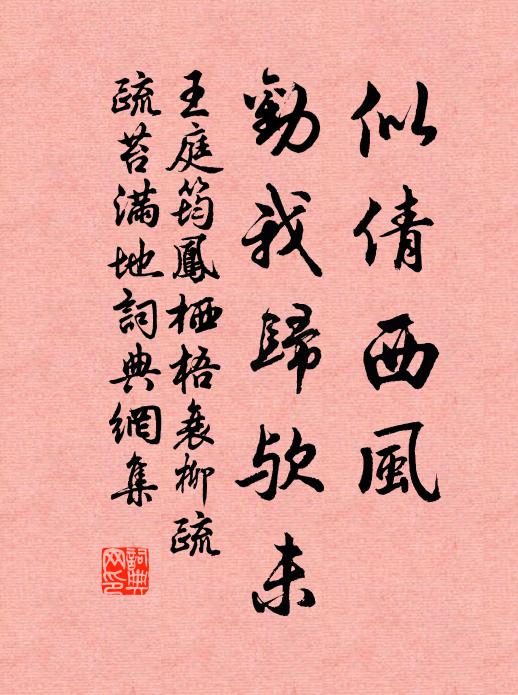 似倩西風
勸我歸欤未
王庭筠鳳栖梧衰柳疏
疏苔满地詞典網集
詞典网印